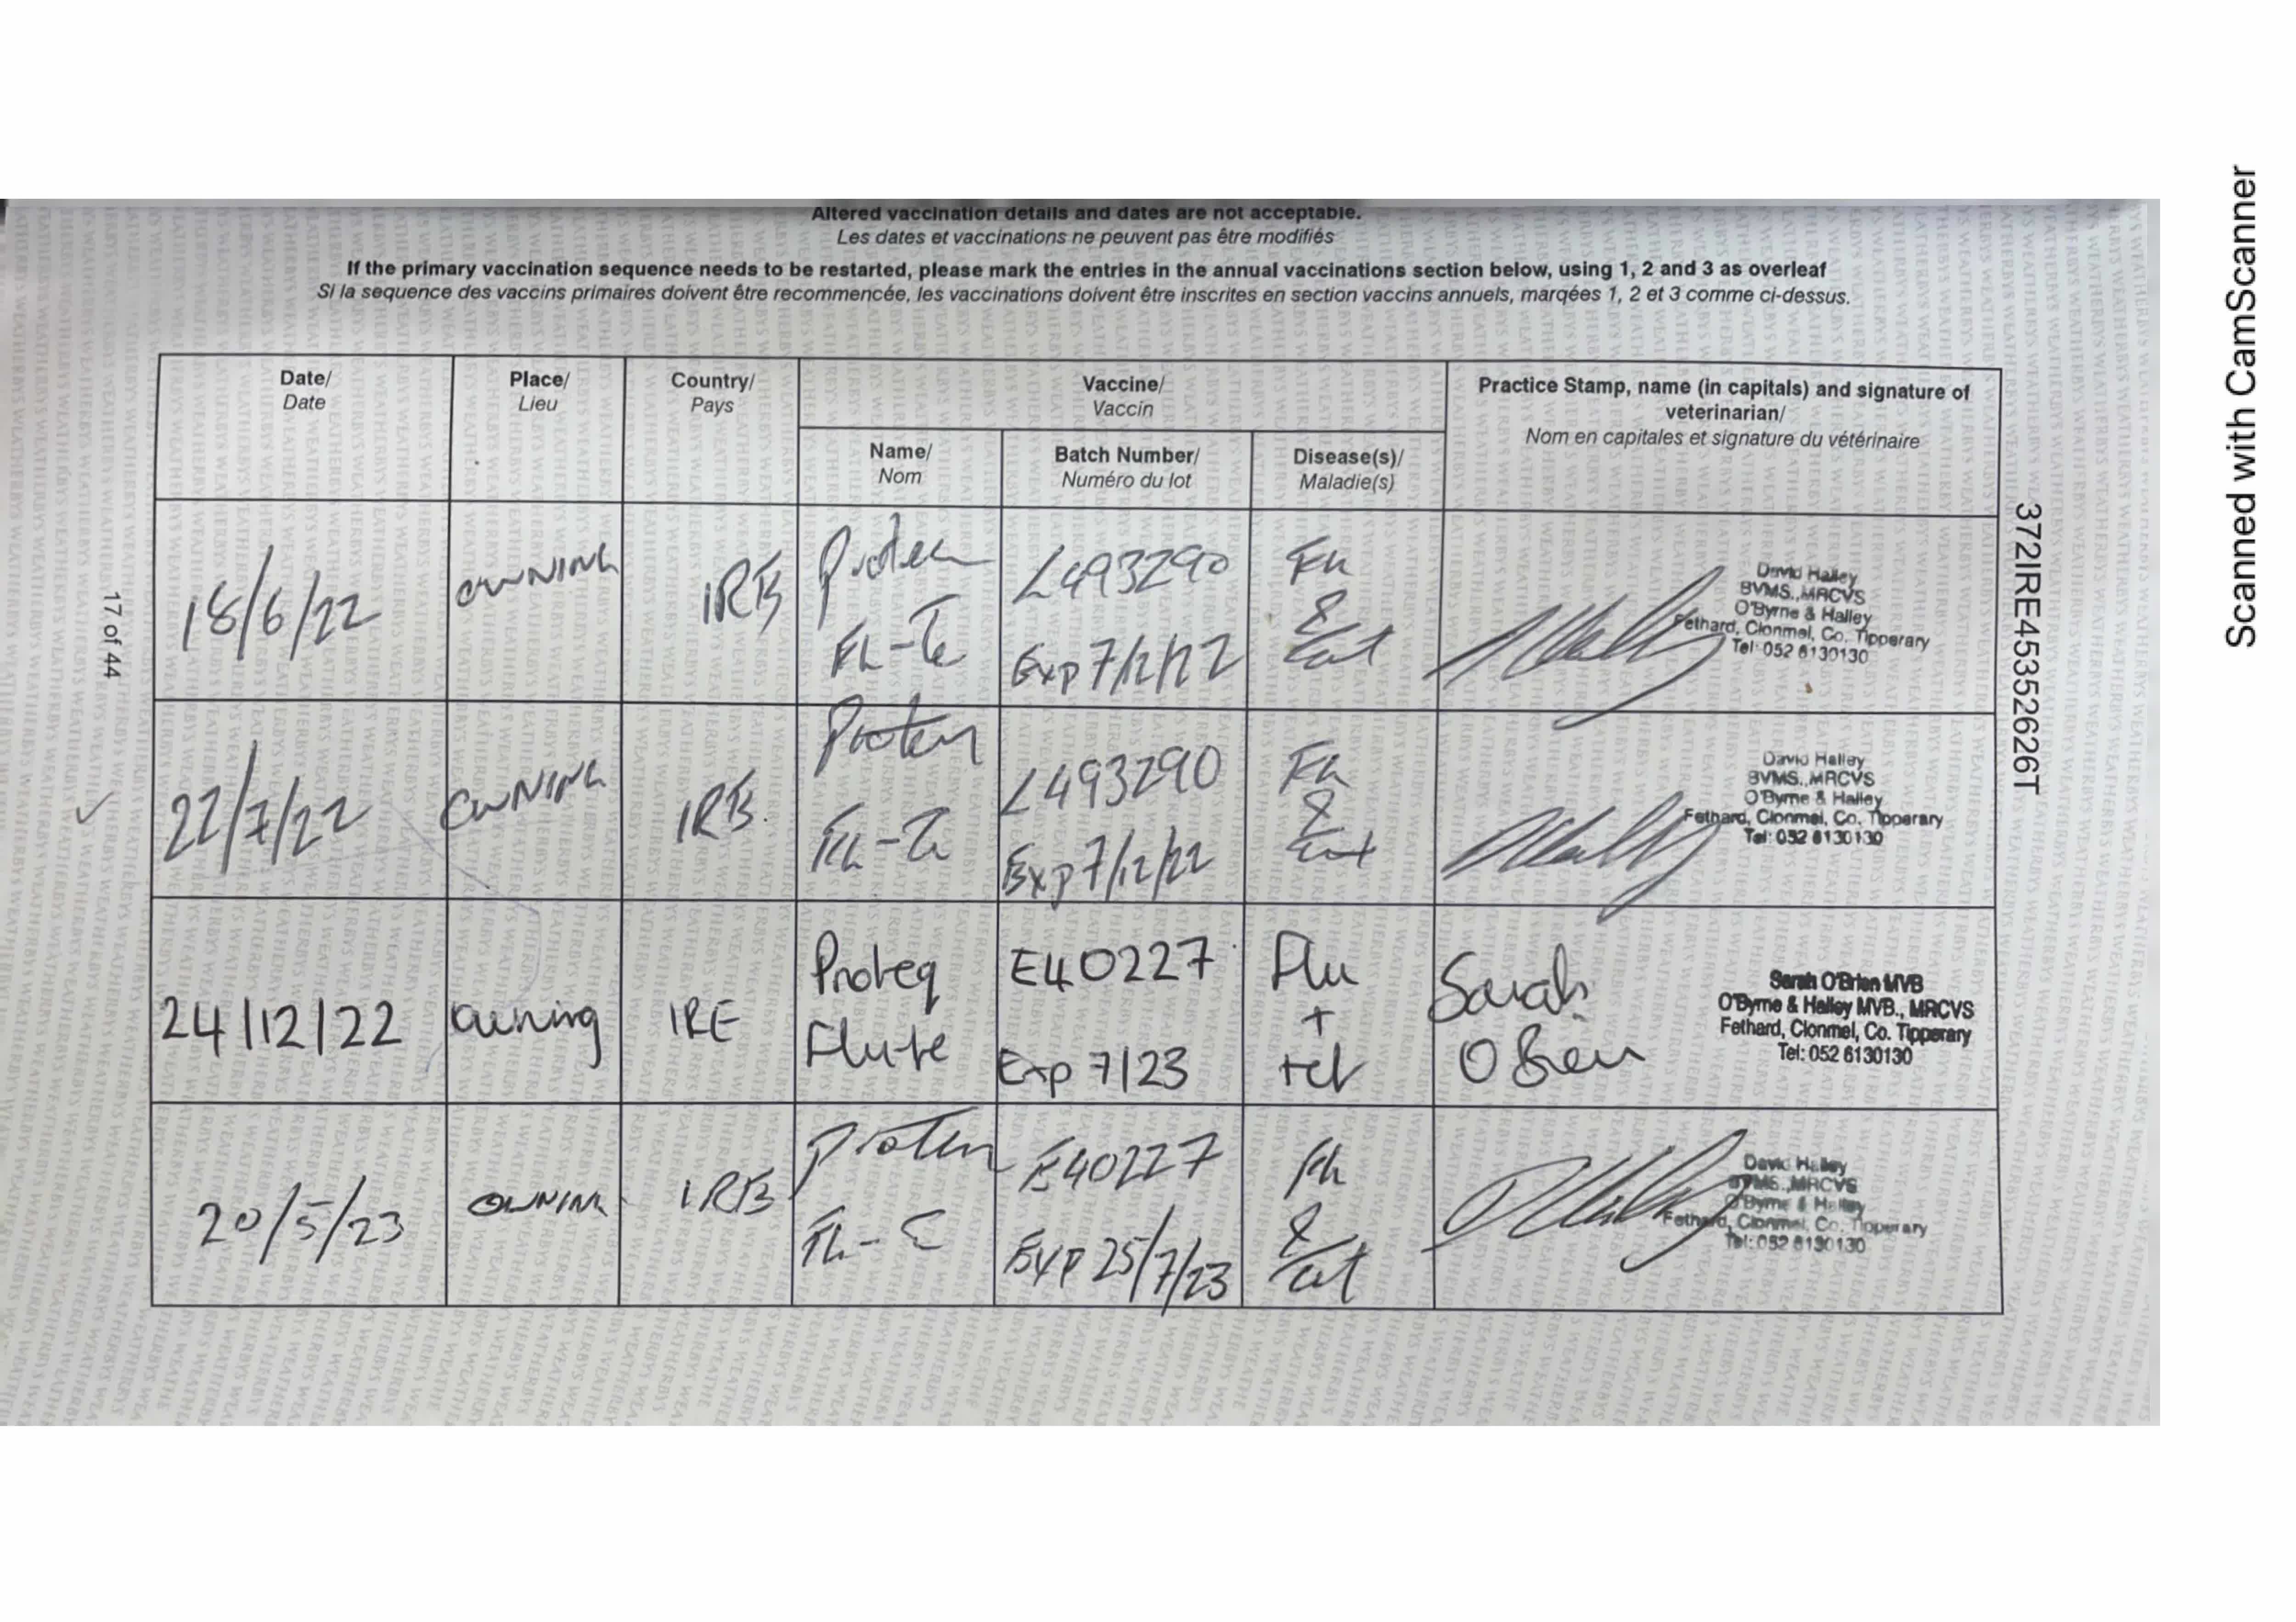 Altered vaccination details and dates are not acceptable.
Les dates et vaccinations ne peuvent pas être modifiés
If the primary vaccination sequence needs to be restarted, please mark the entries in the annual vaccinations section below, using 1, 2 and 3 as overleaf
Si la sequence des vaccins primaires doivent être recommencée, les vaccinations doivent être inscrites en section vaccins annuels, marqées 1, 2 et 3 comme ci-dessus.
Date/
Date
Place/
Lieu
Country/
Pays
Vaccine/
Vaccin
Name/
Nom
Batch Number/
Numéro du lot
Disease(s)/
Maladie(s)
Practice Stamp, name (in capitals) and signature of
veterinarian/
Nom en capitales et signature du vétérinaire
18/6/22
OWNING
IRE
L493290
Exp 7/12/22
&
David Halley
BVMS., MRCVS
O'Byrne & Halley
Fethard, Clonmel, Co. Tipperary
Tel: 052 6130130
22/7/22
OWNING
IRE
L493290
Exp 7/12/22
&
David Halley
BVMS., MRCVS
O'Byrne & Halley
Fethard, Clonmel, Co. Tipperary
Tel: 052 6130130
24/12/22
Owning
IRE
Proteq
Flu-te
E40227
Exp 7/23
Flu
+
tet
Sarah
O Brien
Sarah O'Brien MVB
O'Byrne & Halley MVB., MRCVS
Fethard, Clonmel, Co. Tipperary
Tel: 052 6130130
20/5/23
OWNING
IRE
E40227
EXP 25/7/23
&
David Halley
BVMS., MRCVS
O'Byrne & Halley
Fethard, Clonmel, Co. Tipperary
Tel: 052 6130130
17 of 44
372IRE45352626T
Scanned with CamScanner